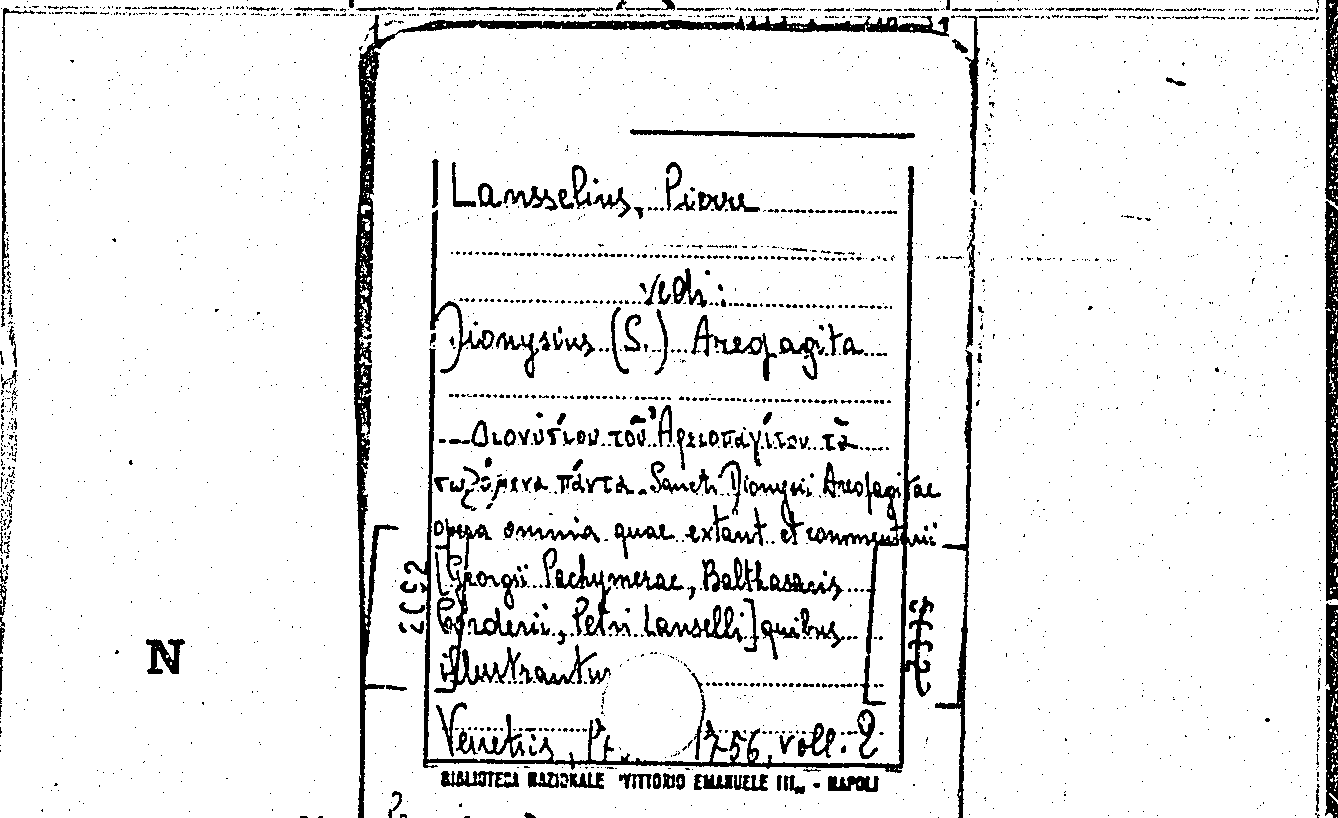 Lansselius, Pierre
vedi:
Dionysius (S.) Areopagita
Διονυσίου τοῦ Ἀρειοπαγίτου τὰ
σωζόμενα πάντα. Sancti Dionysii Areopagitae
opera omnia quae extant et commentarii
[Georgii Pachymerae, Balthasaris
Corderii, Petri Lansselli] quibus
illustrantur
Venetiis, 1756, voll. 2
BIBLIOTECA NAZIONALE "VITTORIO EMANUELE III„ - NAPOLI
N